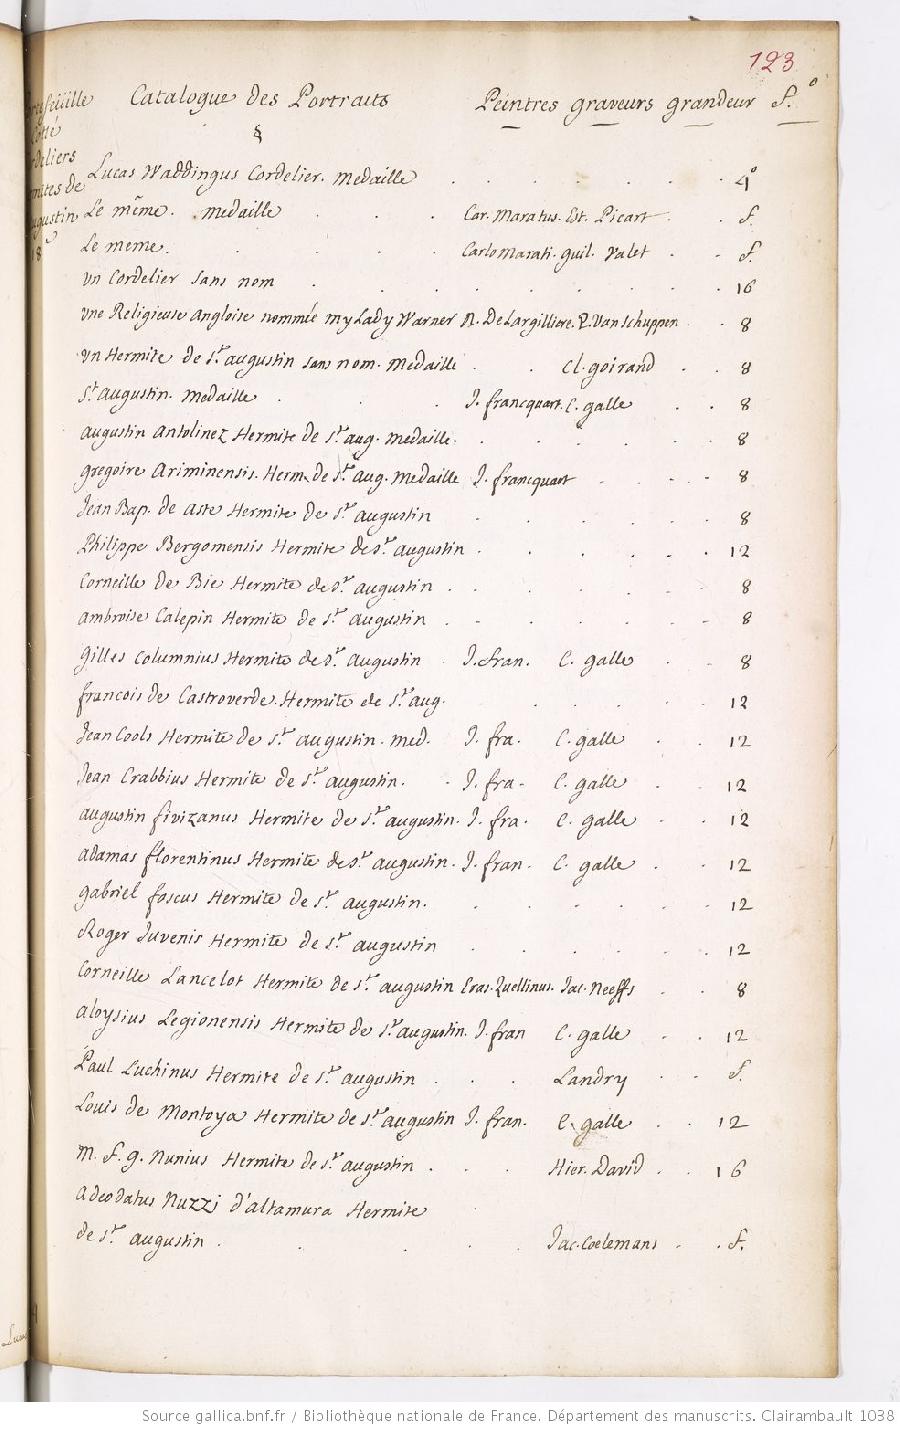 123
Catalogue des Portraits Peintres graveurs grandeur f.°
§
Lucas Waddingus Cordelier. medaille 4°
Le même. medaille Car. Maratus. Est. Picart f.
Le meme. Carlo Marati. guil. Valet f.
vn Cordelier sans nom 16
vne Religieuse angloise nommée myLady Warner N. De Largilliere. P. Van Schuppen 8
vn Hermite de st. augustin sans nom. medaille Cl. goirand 8
St. augustin. medaille J. francquart. C. galle 8
augustin antolinez Hermite de st. aug. medaille 8
gregoire Ariminensis. Herm. de st. aug. medaille J. francquart 8
Jean Bap. de aste Hermite de st. augustin 8
Philippe Bergomensis Hermite de st. augustin 12
Corneille de Bie Hermite de st. augustin 8
ambroise Calepin Hermite de st. augustin 8
gilles Columnius Hermite de st. augustin J. fran. C. galle 8
francois de Castroverde. Hermite de st. aug. 12
Jean Cools Hermite de st. augustin. med. J. fra. C. galle 12
Jean Crabbius Hermite de st. augustin. J. fra. C. galle 12
augustin fivizanus Hermite de st. augustin. J. fra. C. galle 12
adamas florentinus Hermite de st. augustin. J. fran. C. galle 12
gabriel foscus Hermite de st. augustin. 12
Roger Juvenis Hermite de st. augustin 12
Corneille Lancelot Hermite de st. augustin Eras. Quellinus. Jac. Neeffs 8
aloysius Legionensis Hermite de st. augustin. J. fran C. galle 12
Paul Luchinus Hermite de st. augustin Landry f.
Louis de Montoya Hermite de st. augustin J. fran. C. galle 12
m. f. g. Nunius Hermite de st. augustin. Hier. David 16
adeodatus Nuzzi d'altamura Hermite
de st. augustin. Jac. Coelemans f.
Source gallica.bnf.fr / Bibliothèque nationale de France. Département des manuscrits. Clairambault 1038